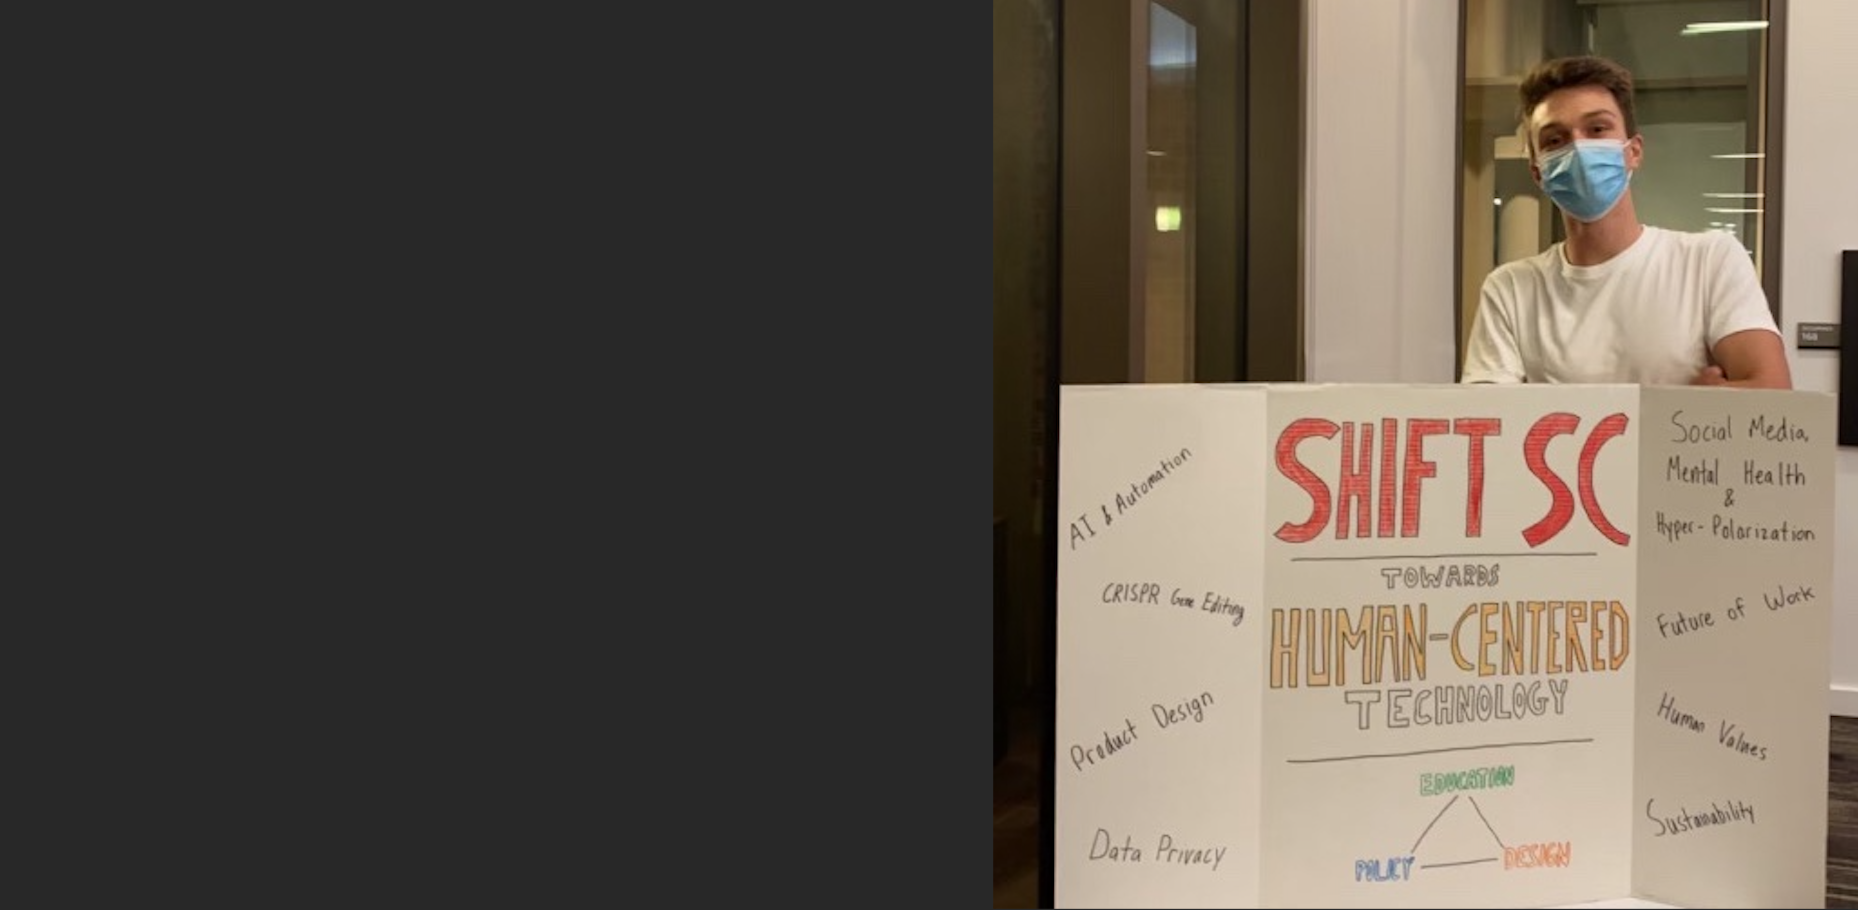 AI & Automation
CRISPR Gene Editing
Product Design
Data Privacy
SHIFT SC
TOWARDS
HUMAN-CENTERED
TECHNOLOGY
EDUCATION
POLICY
DESIGN
Social Media,
Mental Health
&
Hyper-Polarization
Future of Work
Human Values
Sustainability
168